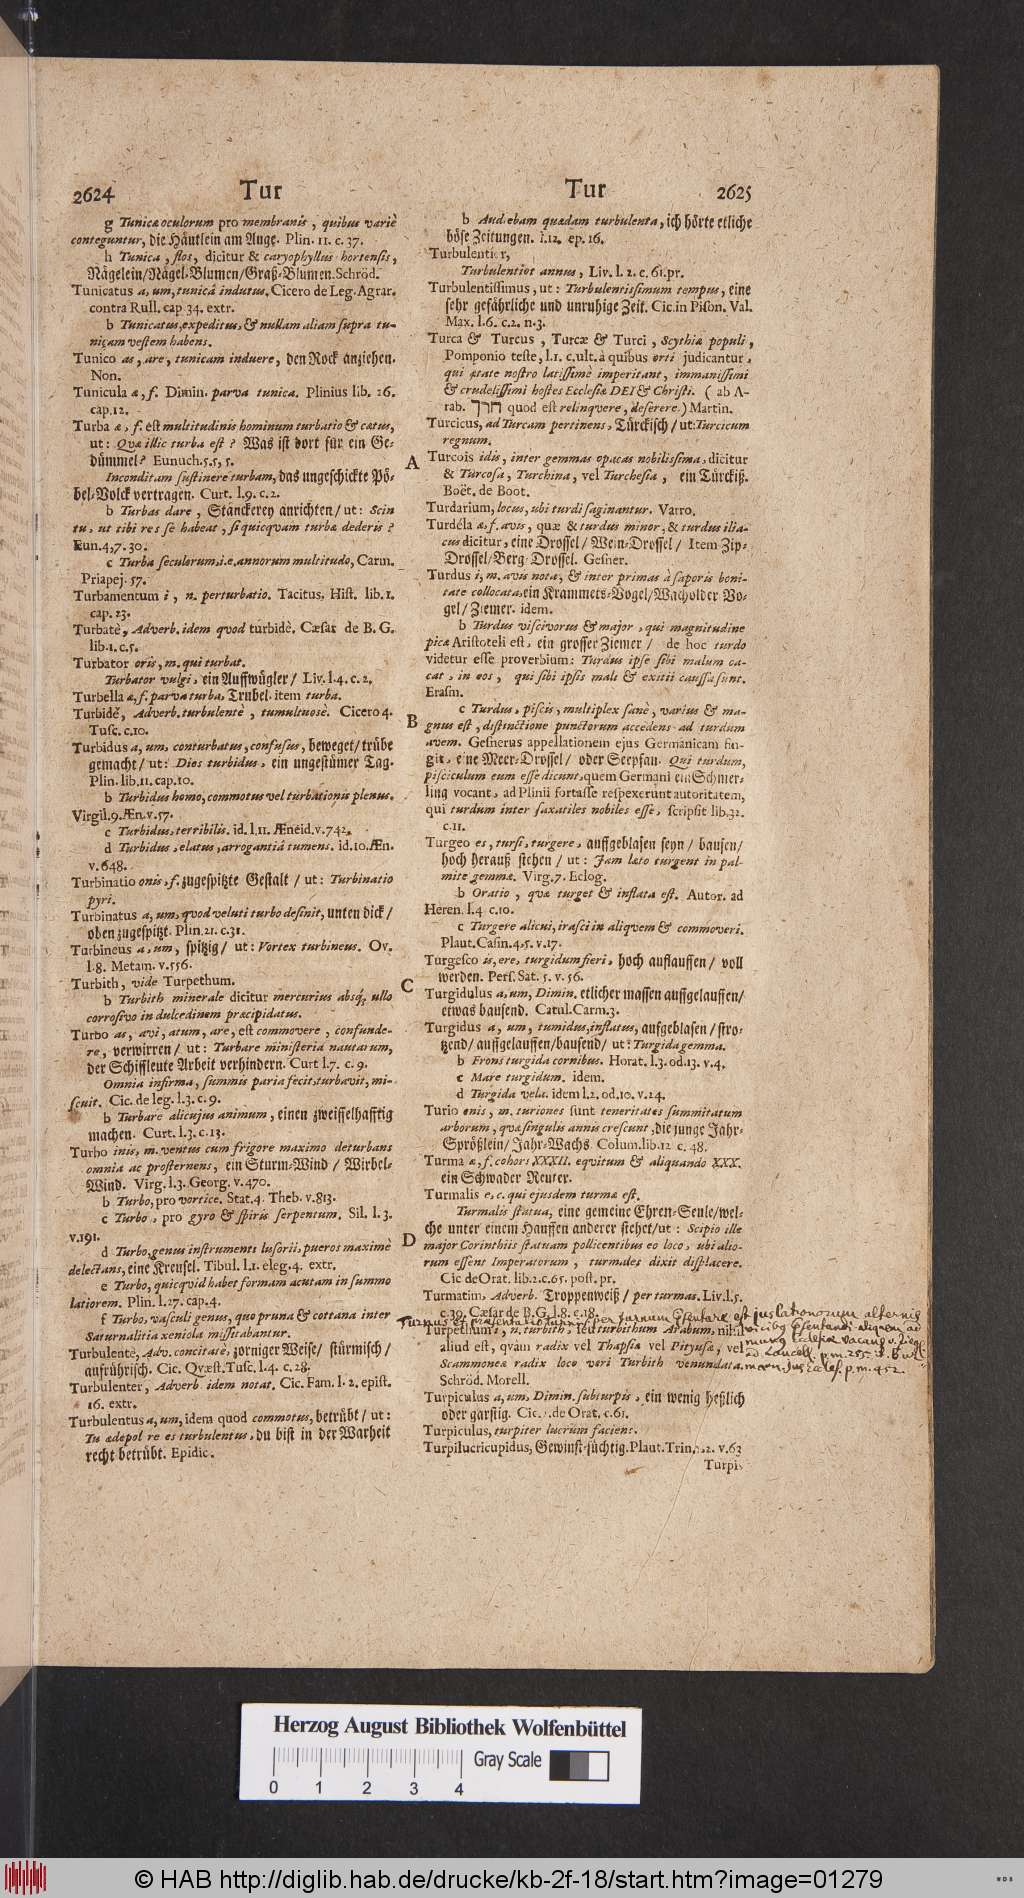 2624 Tur
g Tunicæ oculorum pro membranis, quibus variè
conteguntur, die Häutlein am Auge. Plin. 11. c. 37.
h Tunica, flos, dicitur & caryophyllus hortensis,
Nägelein/Nägel-Blumen/Graß-Blumen. Schröd.
Tunicatus a, um, tunicâ indutus. Cicero de Leg. Agrar.
contra Rull. cap 34. extr.
b Tunicatus, expeditus, & nullam aliam supra tu-
nicam vestem habens.
Tunico as, are, tunicam induere, den Rock anziehen.
Non.
Tunicula æ, f. Dimin. parva tunica. Plinius lib. 26.
cap. 12.
Turba æ, f. est multitudinis hominum turbatio & cœtus,
ut: Quæ illic turba est? Was ist dort für ein Ge-
dümmel? Eunuch. 5. 5, 5.
Inconditam sustinere turbam, das ungeschickte Pö-
bel-Volck vertragen. Curt. l. 9. c. 2.
b Turbas dare, Stänckerey anrichten/ ut: Scin
tu, ut tibi res se habeat, si quicqvam turbæ dederis?
Eun. 4, 7. 30.
c Turba seculorum, i. e. annorum multitudo, Carm.
Priapej. 57.
Turbamentum i, n. perturbatio. Tacitus, Hist. lib. 1.
cap. 23.
Turbatè, Adverb. idem quod turbidè. Cæsar de B. G.
lib. 1. c. 5.
Turbator oris, m. qui turbat.
Turbator vulgi, ein Auffwügler/ Liv. l. 4. c. 2.
Turbella æ, f. parva turba, Trubel. item turba.
Turbidè, Adverb. turbulentè, tumultuosè. Cicero 4.
Tusc. c. 10.
Turbidus a, um, conturbatus, confusus, beweget/trübe
gemacht/ ut: Dies turbidus, ein ungestümer Tag.
Plin. lib. 11. cap. 10.
b Turbidus homo, commotus vel turbationis plenus.
Virgil. 9. Æn. v. 57.
c Turbidus, terribilis. id. l. 11. Æneid. v. 742.
d Turbidus, elatus, arrogantiâ tumens. id. 10. Æn.
v. 648.
Turbinatio onis, f. zugespitzte Gestalt / ut: Turbinatio
pyri.
Turbinatus a, um, quod veluti turbo desinit, unten dick/
oben zugespitzt. Plin. 21. c. 31.
Turbineus a, um, spitzig/ ut: Vortex turbineus. Ov.
l. 8. Metam. v. 556.
Turbith, vide Turpethum.
b Turbith minerale dicitur mercurius absq; ullo
corrosivo in dulcedinem præcipidatus.
Turbo as, avi, atum, are, est commovere, confunde-
re, verwirren/ ut: Turbare ministeria nautarum,
der Schiffleute Arbeit verhindern. Curt l. 7. c. 9.
Omnia infirma, summis paria fecit, turbavit, mi-
scuit. Cic. de leg. l. 3. c. 9.
b Turbare alicujus animum, einen zweiffelhafftig
machen. Curt. l. 3. c. 13.
Turbo inis, m. ventus cum frigore maximo deturbans
omnia ac prosternens, ein Sturm-Wind / Wirbel-
Wind. Virg. l. 3. Georg. v. 470.
b Turbo, pro vortice. Stat. 4. Theb. v. 813.
c Turbo, pro gyro & spiris serpentum. Sil. l. 3.
v. 191.
d Turbo, genus instrumenti lusorii, pueros maximè
delectans, eine Kreusel. Tibul. l. 1. eleg. 4. extr.
e Turbo, quicqvid habet formam acutam in summo
latiorem. Plin. l. 27. cap. 4.
f Turbo, vasculi genus, quo pruna & cottana inter
Saturnalitia xeniola missitabantur.
Turbulentè, Adv. concitatè, zorniger Weise/ stürmisch/
aufrührisch. Cic. Qvæst. Tusc. l. 4. c. 28.
Turbulenter, Adverb idem notat. Cic. Fam. l. 2. epist.
16. extr.
Turbulentus a, um, idem quod commotus, betrübt/ ut:
Tu ædepol re es turbulentus, du bist in der Warheit
recht betrübt. Epidic.
A
B
C
D
Tur 2625
b Audiebam quædam turbulenta, ich hörte etliche
böse Zeitungen. l. 12. ep. 16.
Turbulentior,
Turbulentior annus, Liv. l. 2. c. 61. pr.
Turbulentissimus, ut: Turbulentissimum tempus, eine
sehr gefährliche und unruhige Zeit. Cic. in Pison. Val.
Max. l. 6. c. 2. n. 3.
Turca & Turcus, Turcæ & Turci, Scythiæ populi,
Pomponio teste, l. 1. c. ult. à quibus orti judicantur,
qui ætate nostro latissimè imperitant, immanissimi
& crudelissimi hostes Ecclesiæ DEI & Christi. ( ab A-
rab. תרך quod est relinqvere, deserere.) Martin.
Turcicus, ad Turcam pertinens, Türckisch/ ut: Turcicum
regnum.
Turcois idis, inter gemmas opacas nobilissima, dicitur
& Turcosa, Turchina, vel Turchesia, ein Türckiß.
Boët. de Boot.
Turdarium, locus, ubi turdi saginantur. Varro.
Turdéla æ, f. avis, quæ & turdus minor, & turdus ilia-
cus dicitur, eine Drossel/ Wein-Drossel/ Item Zip-
Drossel/Berg-Drossel. Gesner.
Turdus i, m. avis nota, & inter primas à saporis boni-
tate collocata, ein Krammets-Vogel/Wacholder Vo-
gel/ Ziemer. idem.
b Turdus viscivorus & major, qui magnitudine
picæ Aristoteli est, ein grosser Ziemer/ de hoc turdo
videtur esse proverbium: Turdus ipse sibi malum ca-
cat, in eos, qui sibi ipsis mali & exitii caussa sunt.
Erasm.
c Turdus, piscis, multiplex sanè, varius & ma-
gnus est, distinctione punctorum accedens ad turdum
avem. Gesnerus appellationem ejus Germanicam fin-
git, eine Meer-Drossel/ oder Seepfan. Qui turdum,
pisciculum eum esse dicunt, quem Germani ein Schmer-
ling vocant, ad Plinii fortasse respexerunt autoritatem,
qui turdum inter saxatiles nobiles esse, scripsit lib. 32.
c. 11.
Turgeo es, tursi, turgere, auffgeblasen seyn/ bausen/
hoch herauß stehen/ ut: Jam læto turgent in pal-
mite gemmæ. Virg. 7. Eclog.
b Oratio, quæ turget & inflata est. Autor. ad
Heren. l. 4 c. 10.
c Turgere alicui, irasci in aliqvem & commoveri.
Plaut. Casin. 4. 5. v. 17.
Turgesco is, ere, turgidum fieri, hoch auflauffen/ voll
werden. Pers. Sat. 5. v. 56.
Turgidulus a, um, Dimin. etlicher massen auffgelauffen/
etwas bausend. Catul. Carm. 3.
Turgidus a, um, tumidus, inflatus, aufgeblasen/stro-
tzend/ auffgelauffen/bausend/ ut: Turgida gemma.
b Frons turgida cornibus. Horat. l. 3. od. 13. v. 4.
c Mare turgidum. idem.
d Turgida vela. idem l. 2. od. 10. v. 24.
Turio onis, m. turiones sunt teneritates summitatum
arborum, quæ singulis annis crescunt, Die junge Jahr-
Sprößlein/ Jahr-Wachs. Colum. lib. 12 c. 48.
Turma æ, f. cohors XXXII. eqvitum & aliquando XXX.
ein Schwader Reuter.
Turmalis e, c. qui ejusdem turmæ est.
Turmalis statua, eine gemeine Ehren-Seule/wel-
che unter einem Hauffen anderer stehet/ut: Scipio ille
major Corinthiis statuam pollicentibus eo loco, ubi alio-
rum essent Imperatorum, turmales dixit displacere.
Cic de Orat. lib. 2. c. 65. post. pr.
Turmatim, Adverb. Troppenweiß/ per turmas. Liv. l. 5.
c. 39. Cæsar de B. G. l. 8. c. 18.
Turpethum i, n. turbith, seu turbithum Arabum, nihil
aliud est, qvàm radix vel Thapsiæ vel Pityusæ, vel
Scammoneæ radix loco veri Turbith venundata.
Schröd. Morell.
Turpiculus a, um, Dimin. subturpis, ein wenig heßlich
oder garstig. Cic. de Orat. c. 61.
Turpiculus, turpiter lucrum faciens.
Turpilucricupidus, Gewinst-süchtig. Plaut. Trin. 2. v. 63
Turpis
Turnus per turnum præsentare est jus Patronorum alternis
vicibus præsentandi aliquem ad
munus Ecclesiæ vacans v.
p. m. 255.
jus Eccles. p. m. 452.
Herzog August Bibliothek Wolfenbüttel
Gray Scale
0 1 2 3 4
© HAB http://diglib.hab.de/drucke/kb-2f-18/start.htm?image=01279